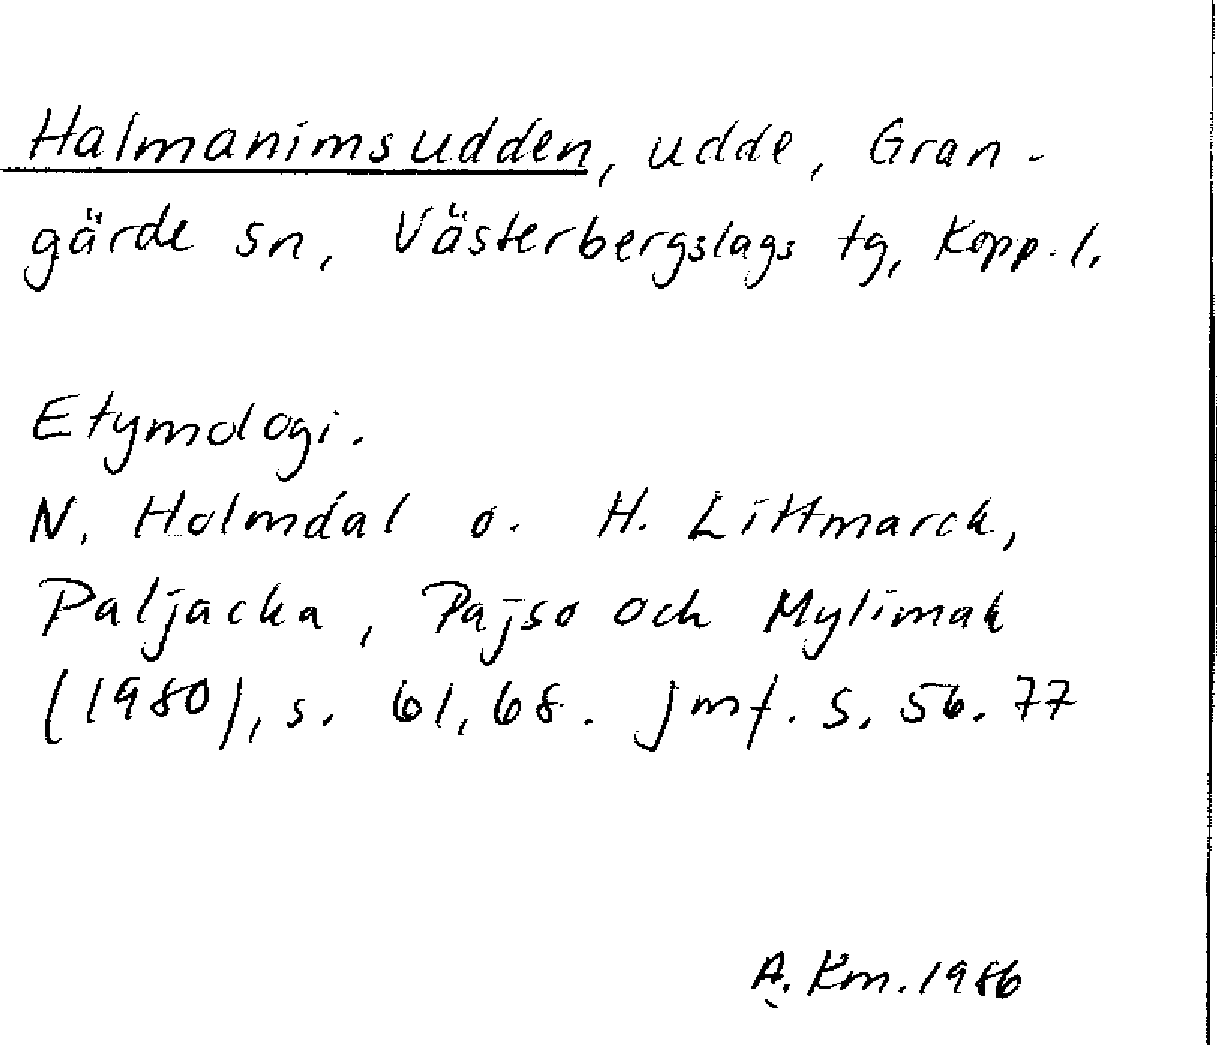 Halmanimsudden, udde, Gran-
gärde sn, Västerbergslags tg, Kopp. l.
Etymologi.
N. Holmdal o. H. Littmarck,
Paljacka, Pajso och Mylimak
(1980), s. 61, 68. jmf. s. 56. 77
A. Km. 1986